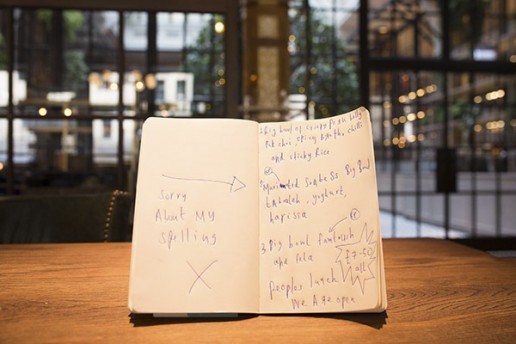 Sorry
About My
Spelling
X
1 Big bowl of crispy Pork belly
Pak choi, sticky broth, chilli
and sticky Rice
OR
2 Marinated Seabass Big Bowl
yoghurt,
harissa
OR
3. Big bowl fattoush
and feta
£7.50
all
Peoples lunch
We Are open